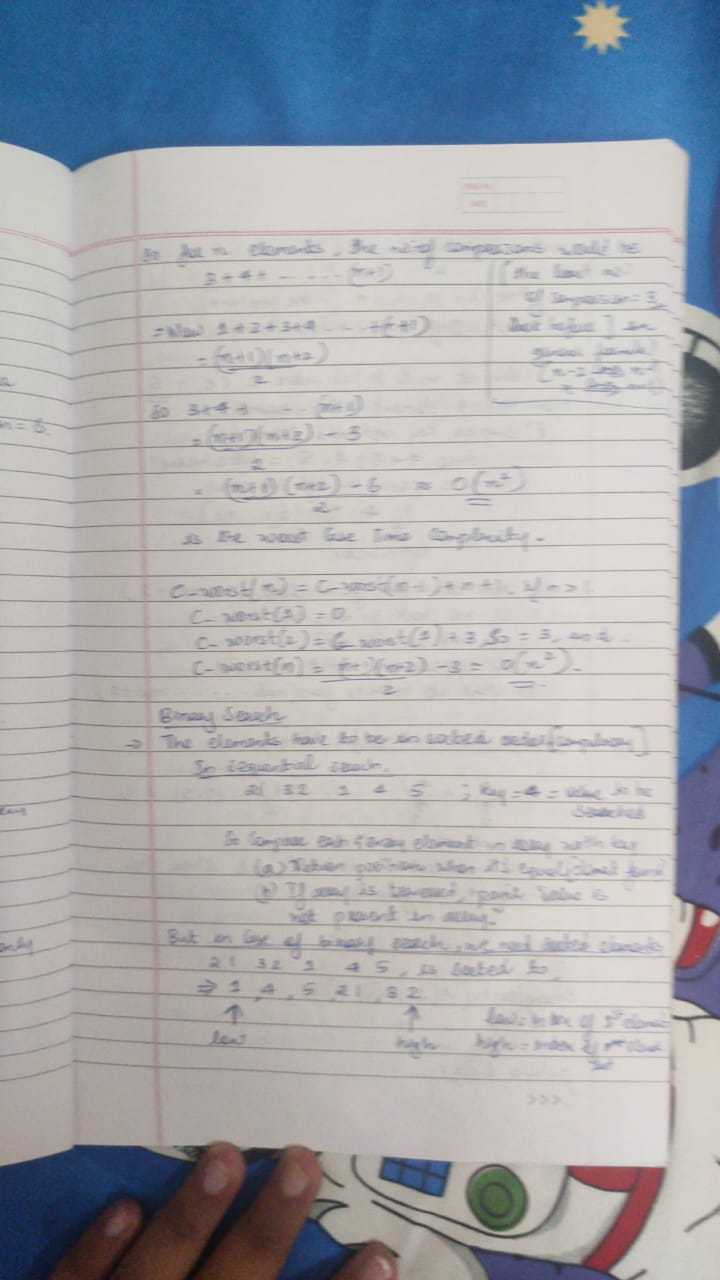 So for n elements, the no. of comparisons would be
3+4+ - - . . . . (n+1)
[the least no.
of comparison = 3,
= Now 1+2+3+4 . . . +(n+1)
= (n+1)(n+2)
2
general formula
So 3+4+ . . . (n+1)
= (n+1)(n+2) - 3
2
= (n+1)(n+2) - 6 ≈ O(n²)
2
is the worst case Time Complexity.
C-worst(n) = C-worst(n-1) + n+1, if n>1
C-worst(1) = 0
C-worst(2) = C-worst(1) + 3, So = 3, and
C-worst(n) = (n+1)(n+2) - 3 = O(n²).
2
Binary Search
→ The elements have to be in sorted order [compulsory]
In sequential search.
21 32 1 4 5 ; key = 4 = value to be
searched
So compare each & every element in array with key
(a) Return position when it's equal/element found
(b) If array is traversed, "print value is
not present in array."
But in case of binary search, we need sorted elements
21 32 1 4 5, is sorted to,
⇒ 1, 4, 5, 21, 32
↑ ↑ low = index of 1st element
low high high = index of element
last
>>>